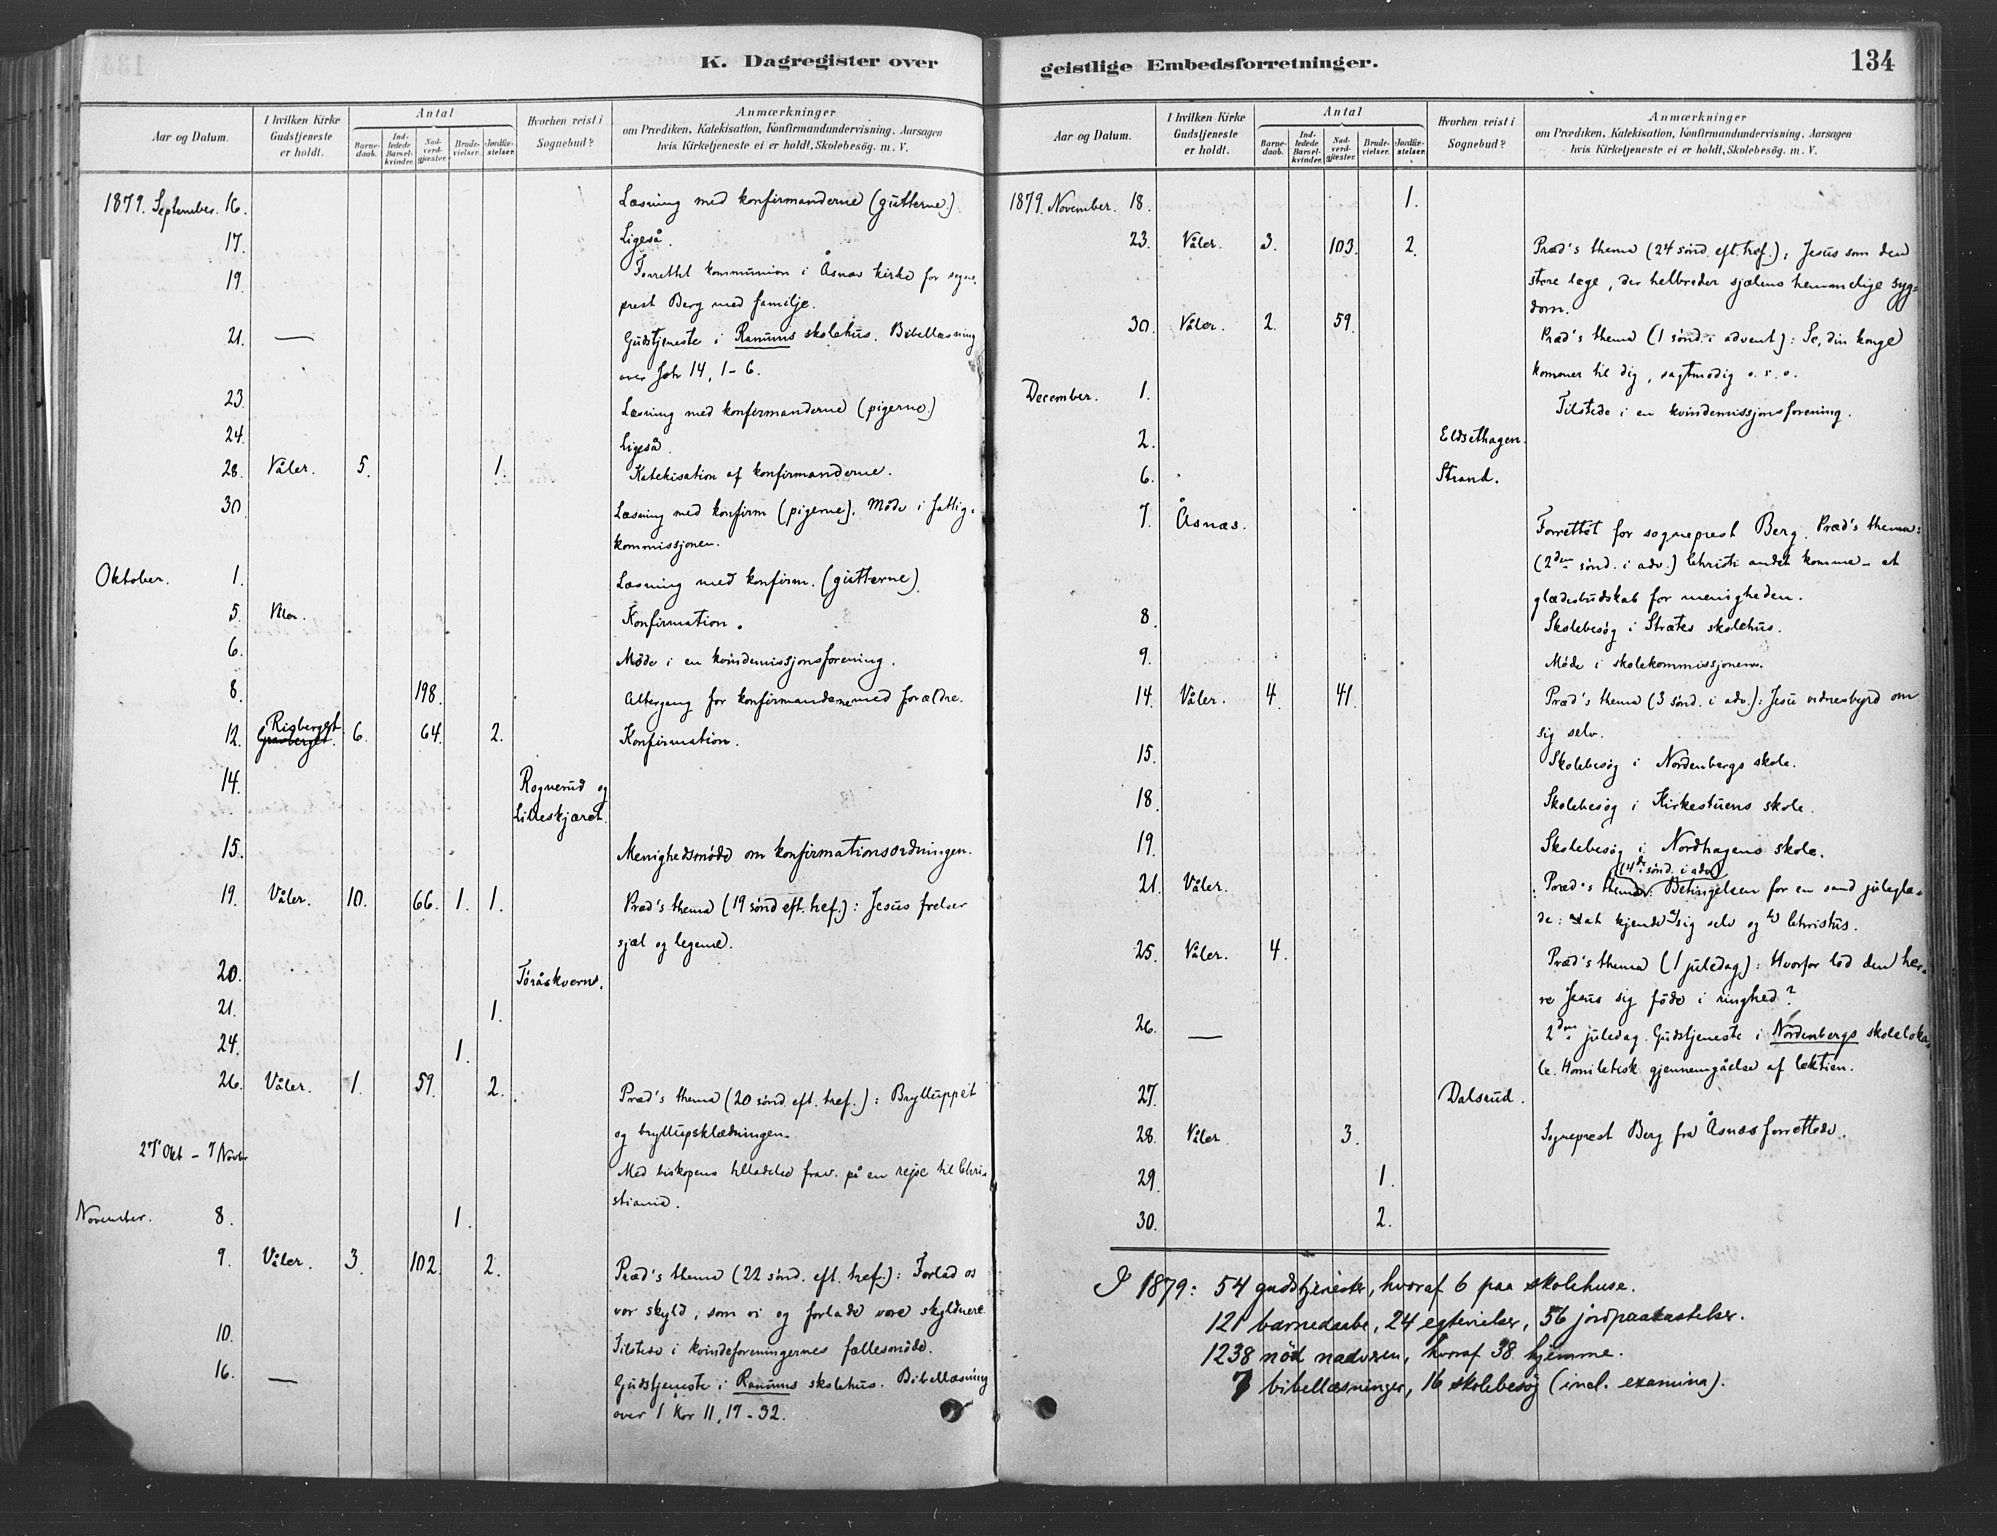 K. Dagregister over
Aar og Datum.
I hvilken Kirke Gudstjeneste er holdt.
Antal
Barnedaab.
Indledede Barselkvinder.
Nadverdgjester.
Brudevielser.
Jordfæstelser.
Hvorhen reist i Sognebud?
Anmærkninger
om Prædiken, Katekisation, Konfirmandundervisning, Aarsagen
hvis Kirketjeneste ei er holdt, Skolebesøg. m. V.
1879. September. 16. Læsning med konfirmanderne (gutterne).
17. Ligeså.
19. Forrettet kommunion i Åsnæs kirke for sogne-
prest Berg med familje.
21. — Gudstjeneste i Ranums skolehus. Bibellæsning
over Joh 14, 1-6.
23. Læsning med konfirmanderne (pigerne)
24. Ligeså.
28. Våler. 5. 1. Katekisation af konfirmanderne.
30. Læsning med konfirm (pigerne). Møde i fattig-
kommissjonen.
Oktober. 1. Læsning med konfirm. (gutterne)
5. Våler. Konfirmation.
6. Møde i en kvindemissjonsforening.
8. 198. Altergang for konfirmanderne med forældre.
Risberget
12. Gravberget. 6. 64. 2. Konfirmation.
14. Rognerud og
Lilleskjæret.
15. Menighedsmøde om konfirmationsordningen.
19. Våler. 10. 66. 1. 1. Præd's thema (19 sønd eft. tref.): Jesus frelser
sjæl og legeme.
20. Toråskvern.
21. 1.
24. 1.
26. Våler. 1. 59. 2. Præd's thema (20 sønd. eft. tref.): Brylluppet
og bryllupsklædningen.
27 Okt - 7 Novbr Med biskopens tilladelse frav. på en rejse til Chri-
stiania.
November. 8. 1.
9. Våler. 3. 102. 2. Præd's thema (22 sønd. eft. tref.): Forlad os
vor skyld, som vi og forlade vore skyldnere
10. Tilstede i kvindeforeningernes fællesmøde.
16. — Gudstjeneste i Ranums skolehus. Bibellæsning
over 1 Kor 11, 17-32.
geistlige Embedsforretninger.
134
Aar og Datum.
I hvilken Kirke Gudstjeneste er holdt.
Antal
Barnedaab.
Indledede Barselkvinder.
Nadverdgjester.
Brudevielser.
Jordfæstelser.
Hvorhen reist i Sognebud?
Anmærkninger
om Prædiken, Katekisation, Konfirmandundervisning, Aarsagen
hvis Kirketjeneste ei er holdt, Skolebesøg. m. V.
1879. November. 18. 1.
23. Våler. 3. 103. 2. Præd's thema (24 sønd. eft. tref.): Jesus som den
store læge, der helbreder sjælens hemmelige syg-
dom.
30. Våler. 2. 59. Præd's thema (1 sønd. i advent): Se, din konge
kommer til dig, sagtmodig o. s. v.
December. 1. Tilstede i en kvindemissjonsforening.
2. Eldsethagen.
6. Strand.
7. Åsnæs. Forrettet for sogneprest Berg. Præd's thema:
(2den sønd. i adv.) Christi andet komme - et
glædesbudskab for menigheden.
8. Skolebesøg i Stræts skolehus.
9. Møde i skolekommissjonen.
14. Våler. 4. 41. Præd's thema (3 sønd. i adv.): Jesu vidnesbyrd om
sig selv.
15. Skolebesøg i Nordenbergs skole.
18. Skolebesøg i Kirkestuens skole.
19. Skolebesøg i Nordhagens skole.
(4de sønd. i adv)
21. Våler. Præd's thema: Betingelsen for en sand juleglæ-
de: at kjende sig selv og Christus.
25. Våler. 4. Præd's thema (1 juledag): Hvorfor lod den her-
re Jesus sig føde i ringhed?
26. — 2den juledag. Gudstjeneste i Nordenbergs skoleloka-
le. Homiletisk gjennemgåelse af lektien.
27. Dalsrud.
28. Våler. 3. Sogneprest Berg fra Åsnæs forrettede.
29. 1.
30. 2.
I 1879: 54 gudstjenester, hvoraf 6 paa skolehuse.
121 barnedaabe, 24 egtevielser, 56 jordpaakastelser.
1238 nød nadveren, hvoraf 38 hjemme.
7 bibellæsninger, 16 skolebesøg (incl. examina).